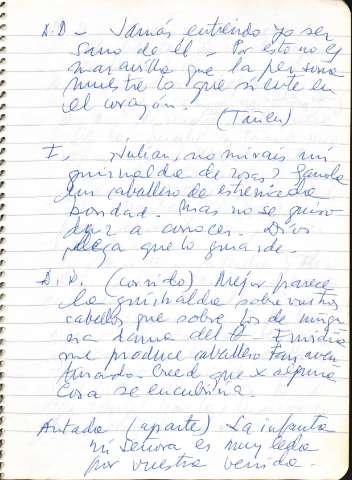 D.D - Jamás entiendo yo ser
sano de él - Por esto no es
maravilla que la persona
muestre lo que siente en
el corazón.
(Tañen)
I, Julian, no mirais mi
guirnalda de rosas? Ganola
un caballero de estremada
bondad. Mas no se quiso
dar a conocer. Dios
plega que lo guarde.
D. D. (corrido) Mejor parece
la guirnalda sobre vuestros
cabellos que sobre los de ninguna
otra dama del - Envidia
me produce caballero tan aven
turado. Creed que x alguna
cosa se encubriria.
Artada (aparte) La infanta
mi señora es muy leda
por vuestra venida.